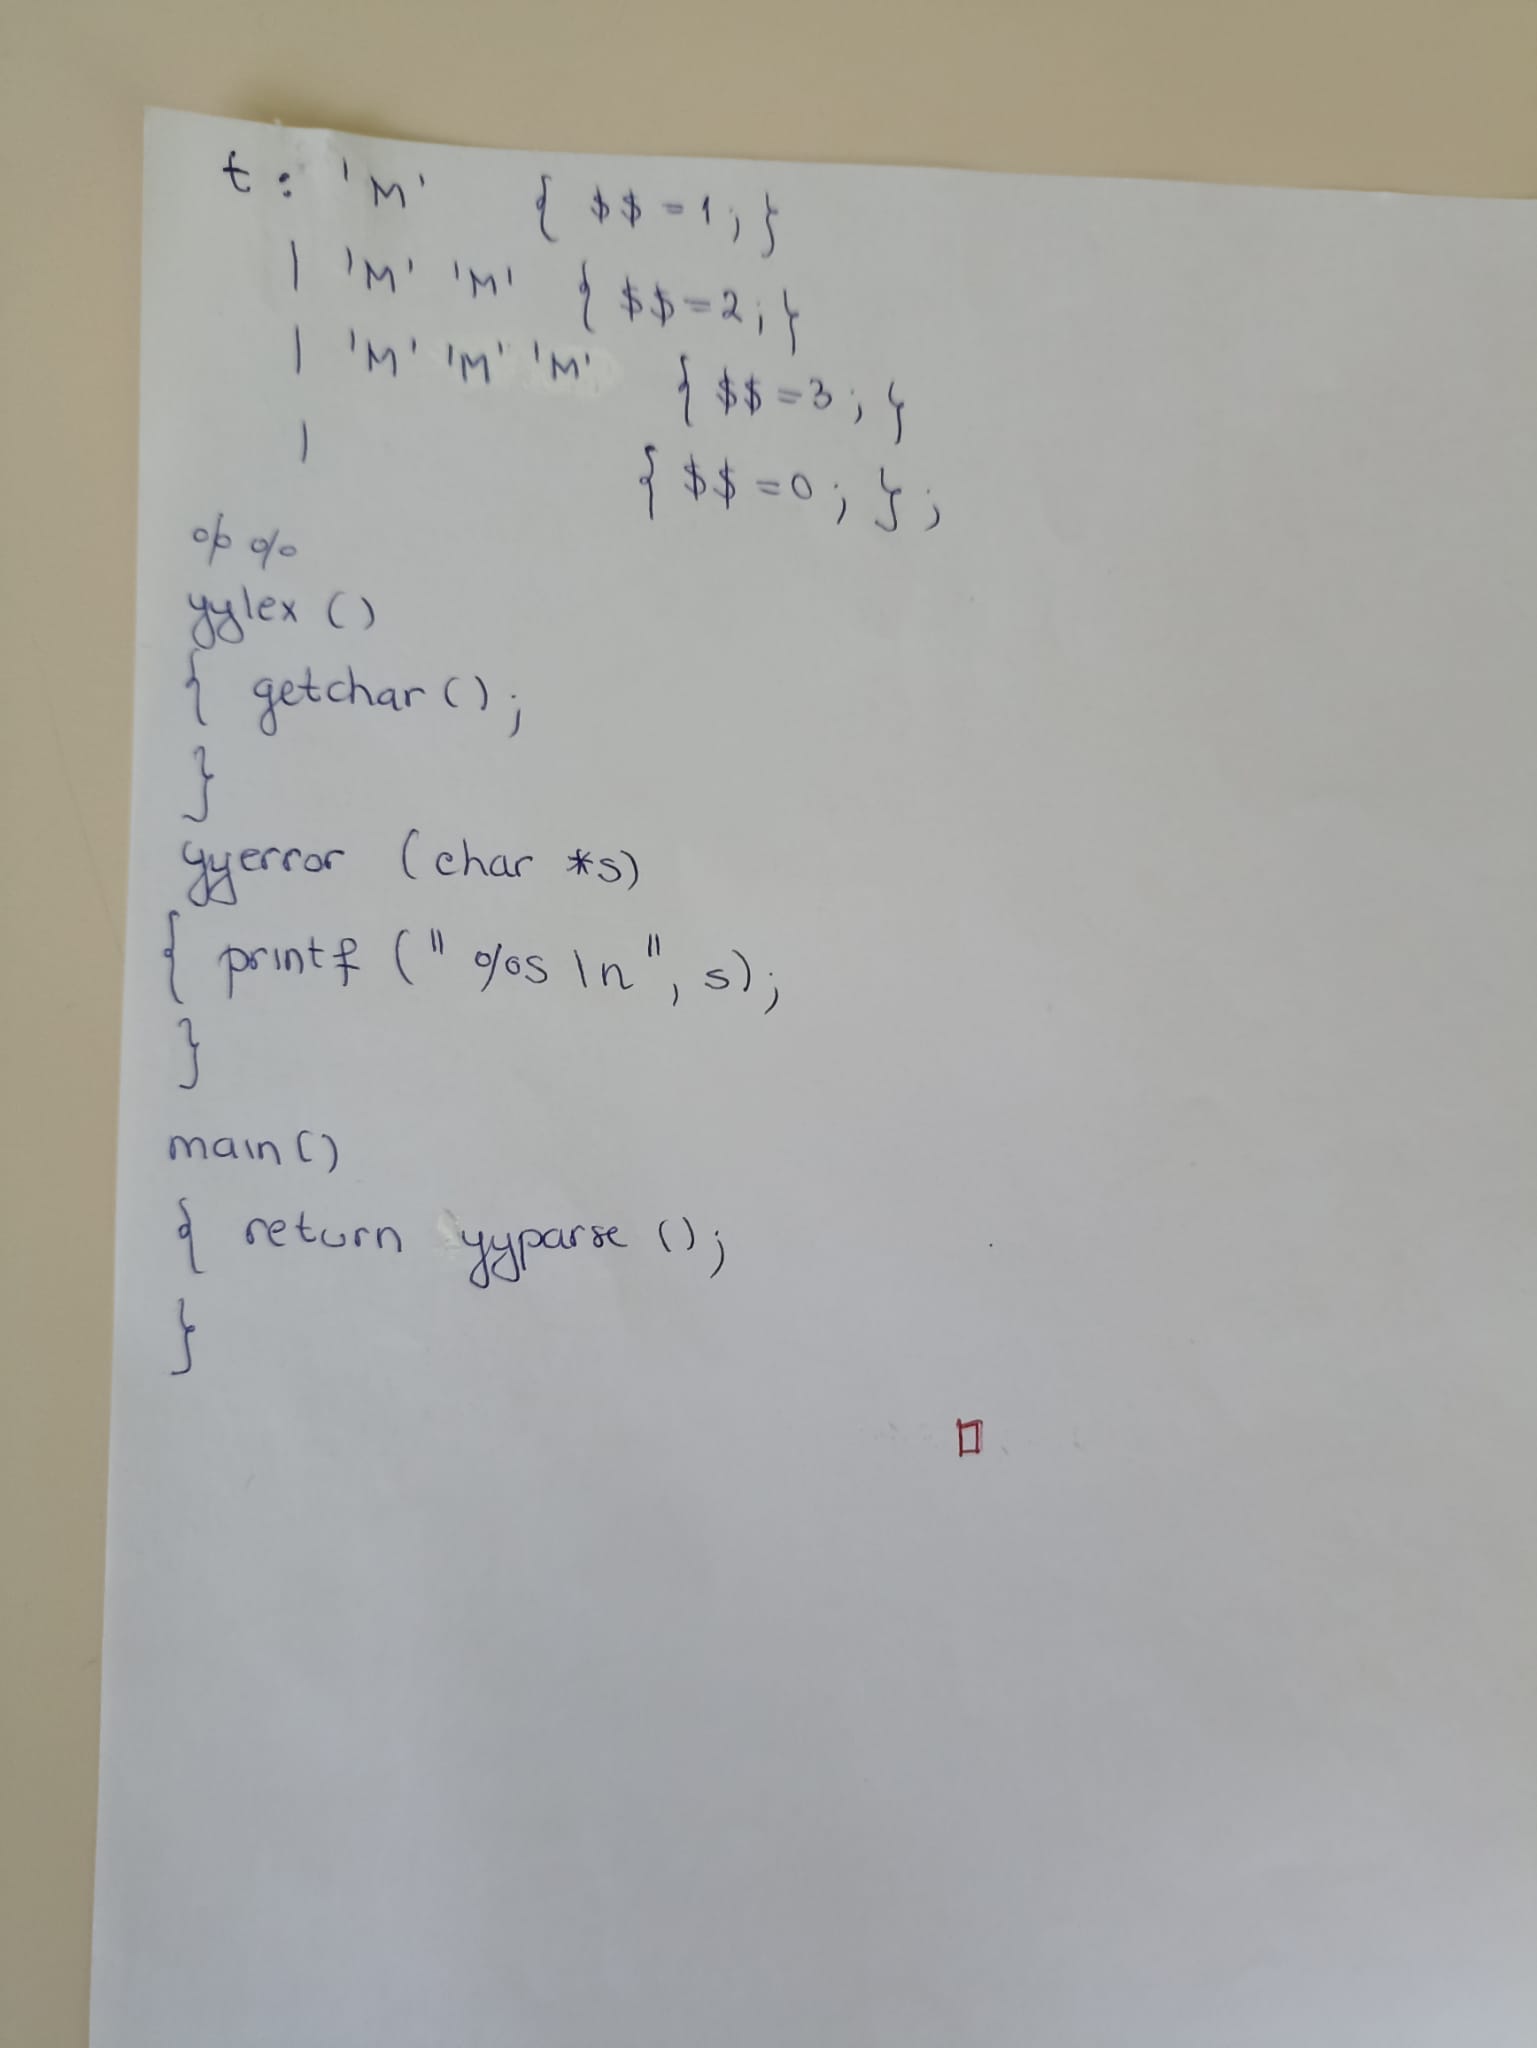 t: 'M' { $$=1; }
| 'M' 'M' { $$=2; }
| 'M' 'M' 'M' { $$=3; }
| { $$=0; };
%%
yylex ()
{ getchar();
}
yyerror (char *s)
{ printf ("%s \n", s);
}
main()
{ return yyparse ();
}